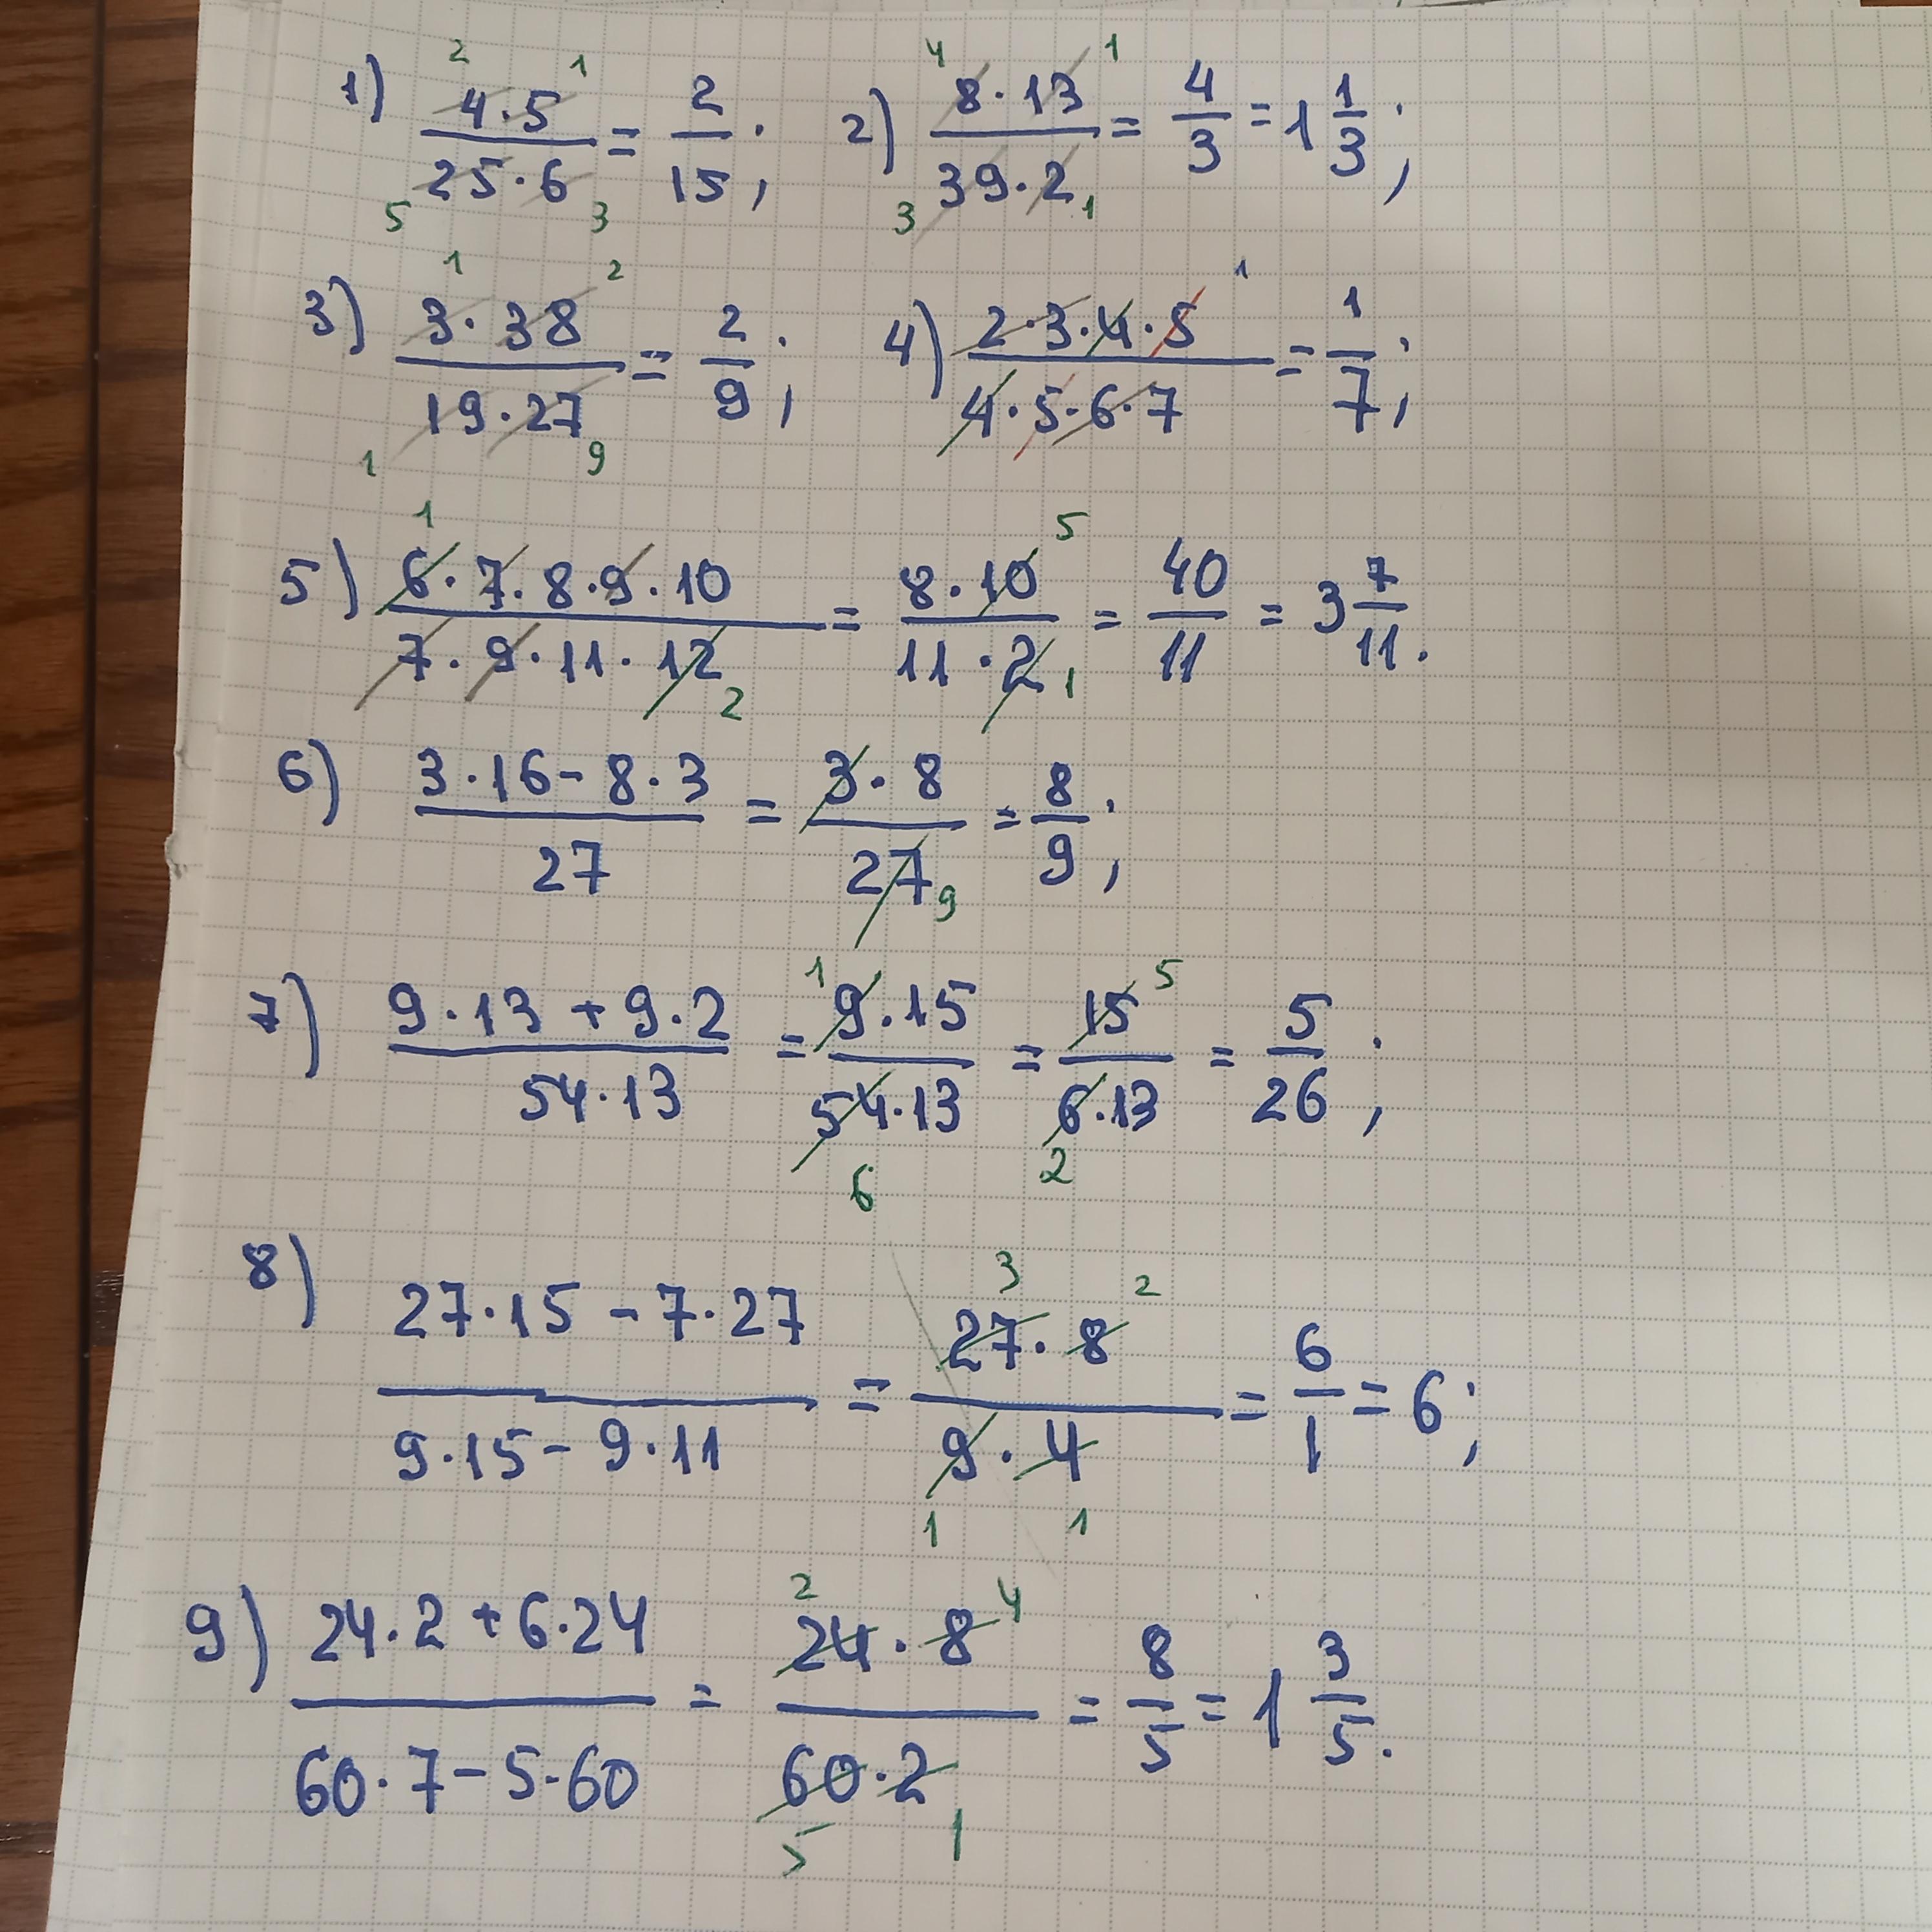 1) 4·5/25·6 = 2/15; 2) 8·13/39·2 = 4/3 = 1 1/3;
2 1 5 3 4 1 3 1
3) 3·38/19·27 = 2/9; 4) 2·3·4·5/4·5·6·7 = 1/7;
1 2 1 9 1
5) 6·7·8·9·10/7·9·11·12 = 8·10/11·2 = 40/11 = 3 7/11.
1 2 5 1
6) 3·16-8·3/27 = 3·8/27 = 8/9;
9
7) 9·13+9·2/54·13 = 9·15/54·13 = 15/6·13 = 5/26;
1 6 5 2
8) 27·15-7·27/9·15-9·11 = 27·8/9·4 = 6/1 = 6;
3 2 1 1
9) 24·2+6·24/60·7-5·60 = 24·8/60·2 = 8/5 = 1 3/5.
2 4 5 1